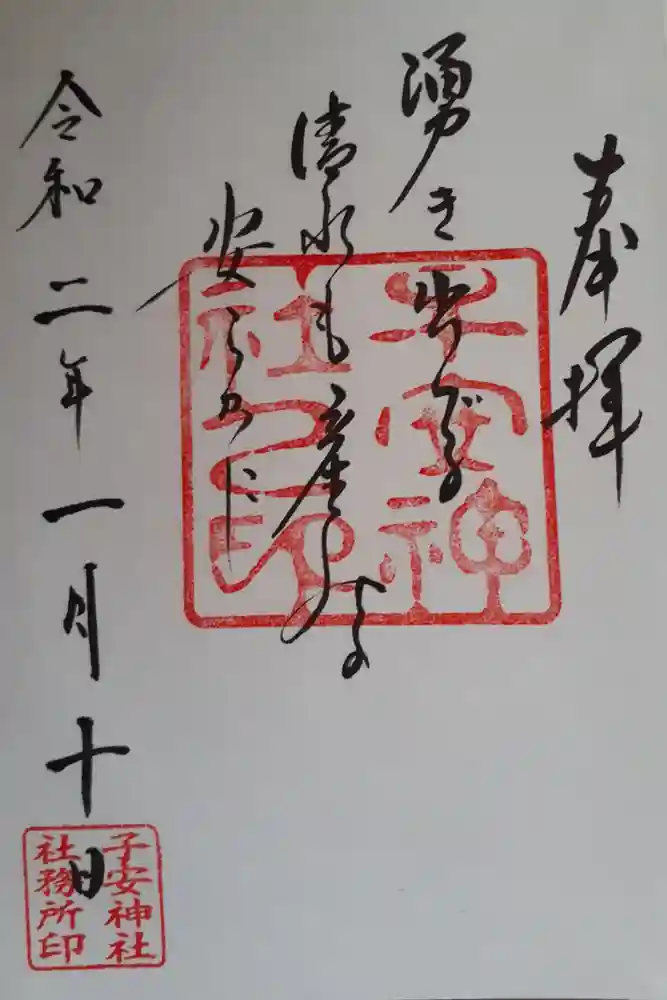 奉拝
湧き出づる
清水も産
安らかに
令和二年一月十日
子安神社之印
子安神社
社務所印